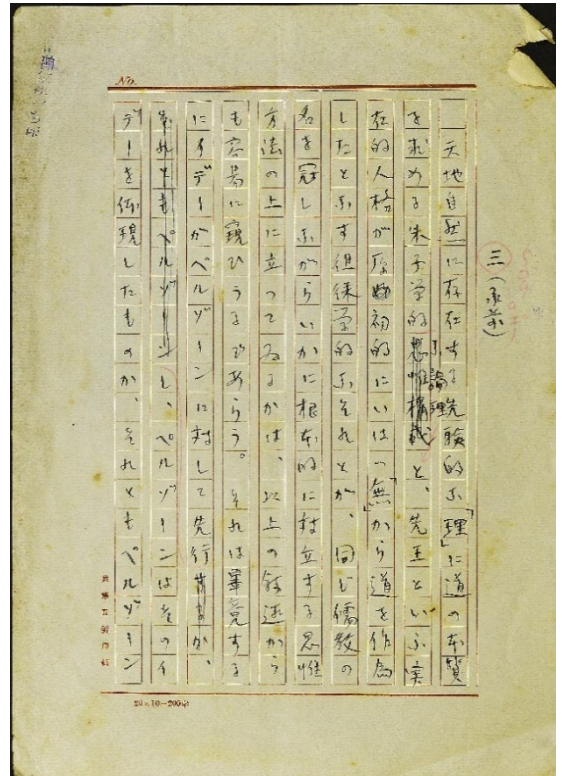 No.
三(承前)
天地自然に存在する先験的な「理」に道の本質
を求める朱子学的な論理と、先王といふ実
在的人格が原初的にいはゞ「無」から道を作為
したとなす徂徠学的なそれとが、同じ儒教の
名を冠しながらいかに根本的に対立する思惟
方法の上に立つてゐるかは、以上の敍述から
も容易に窺ひうるであらう。それは畢竟する
にイデーがペルゾーンに対して先行
し、ペルゾーンはそのイ
デーを体現したものか、それともペルゾーン
20×10—200字